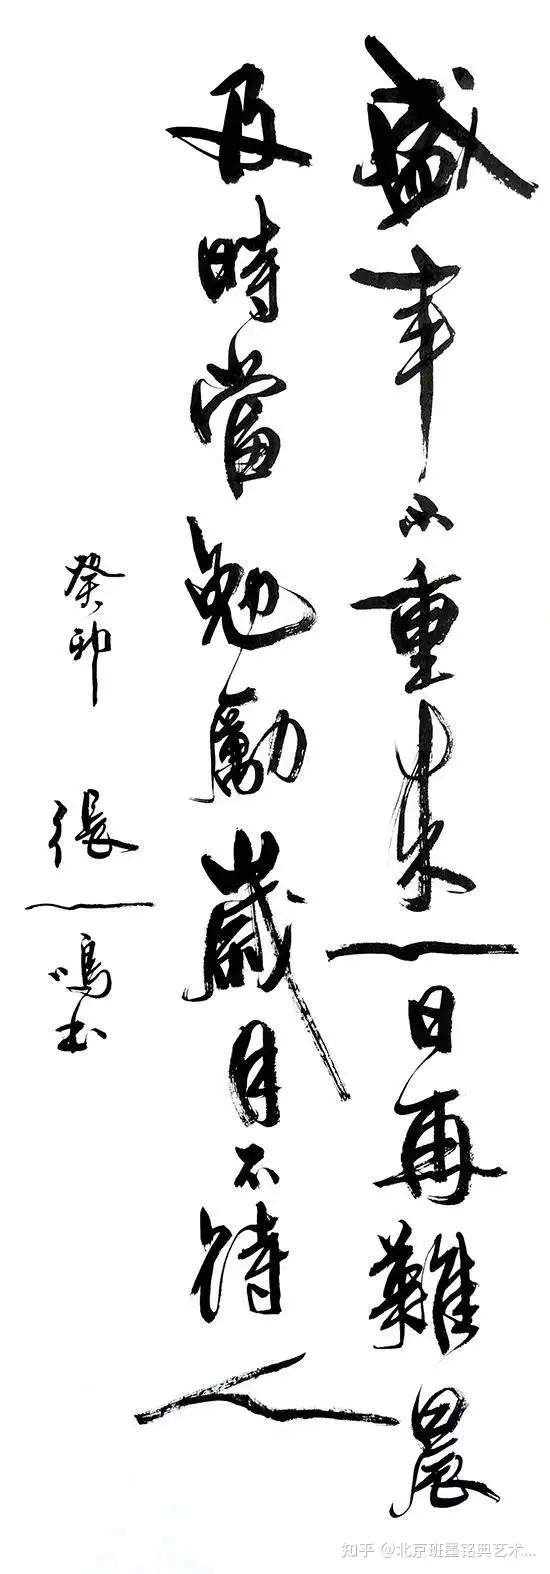 盛年不重來一日再難晨
及時當勉勵歲月不待人
癸卯 張一鳴書
知乎 @北京班墨铭典艺术...